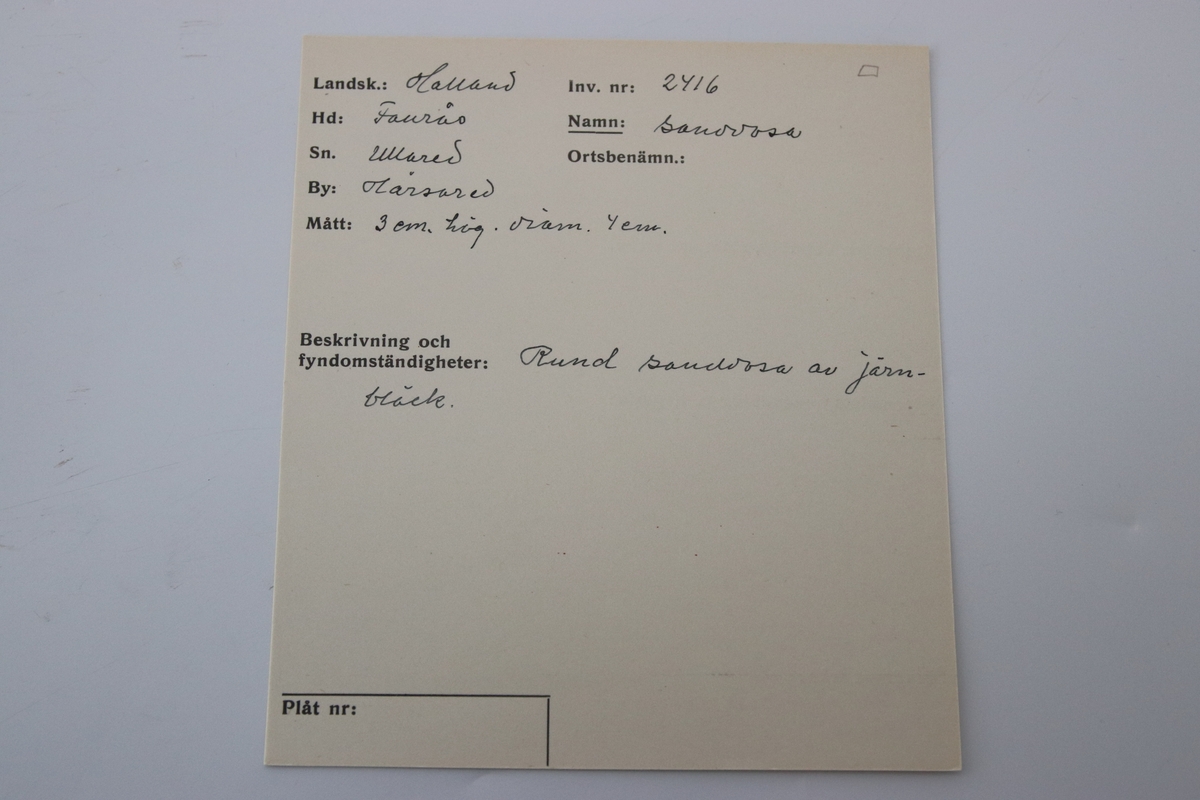 Landsk.: Halland Inv. nr: 2416
Hd: Faurås Namn: sanddosa
Sn. Ullared Ortsbenämn.:
By: Härsared
Mått: 3 cm. hög. diam. 4 cm.
Beskrivning och
fyndomständigheter: Rund sanddosa av järn-
bläck.
Plåt nr: